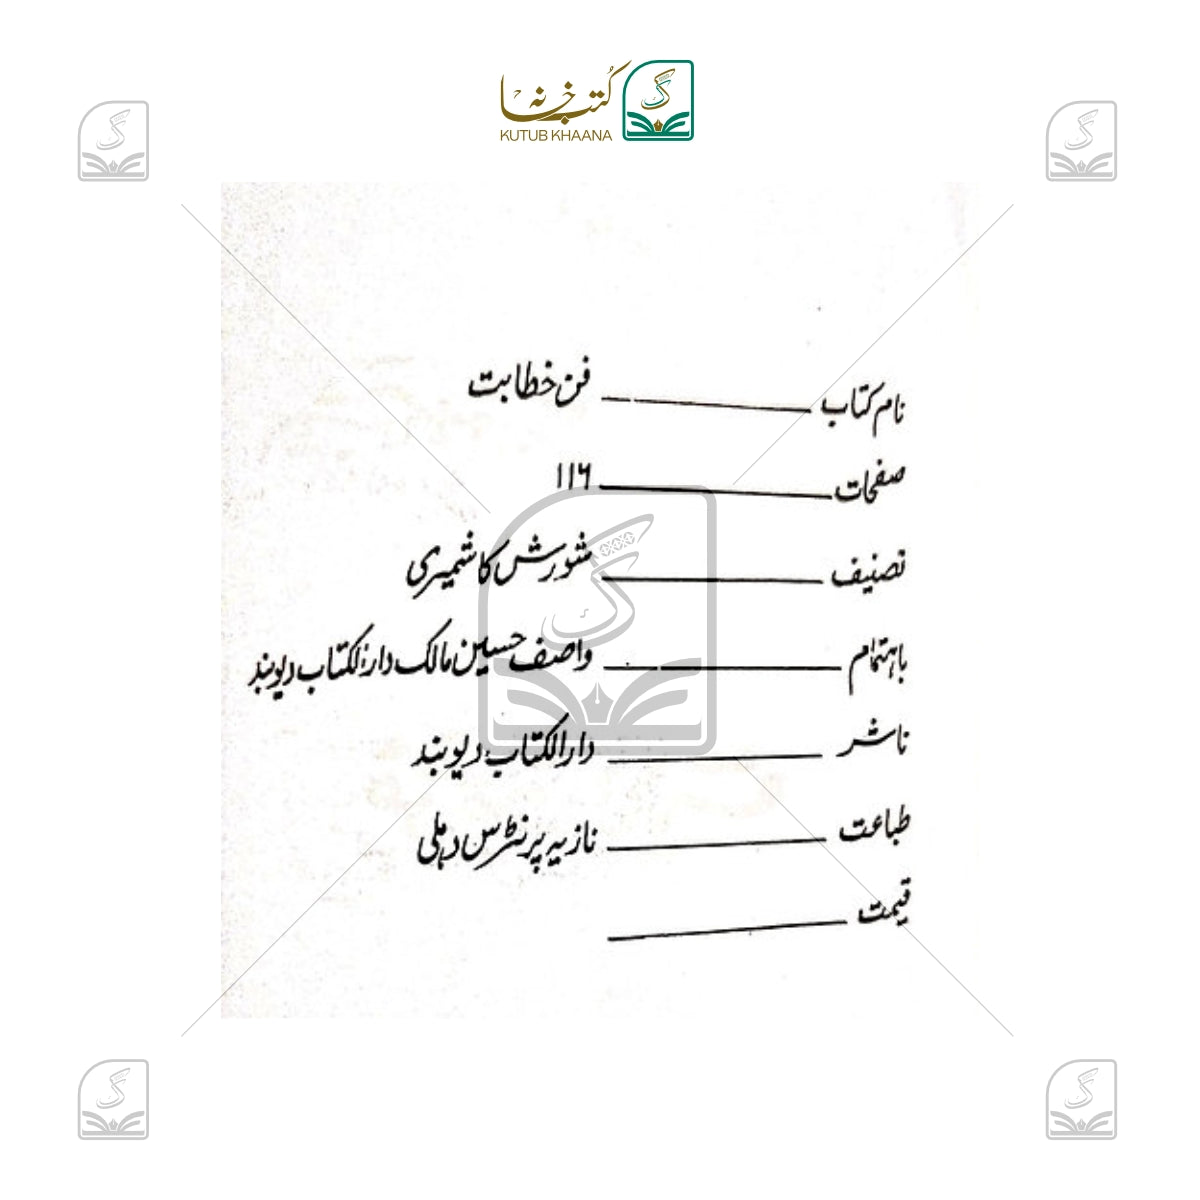 کتب خانہ
KUTUB KHAANA
نام کتاب ـــــــــ فن خطابت
صفحات ـــــــــ ۱۱۶
تصنیف ـــــــــ شورش کاشمیری
باہتمام ـــــــــ واصف حسین مالک دارالکتاب دیوبند
ناشر ـــــــــ دارالکتاب دیوبند
طباعت ـــــــــ نازیہ پرنٹرس دہلی
قیمت ـــــــــ